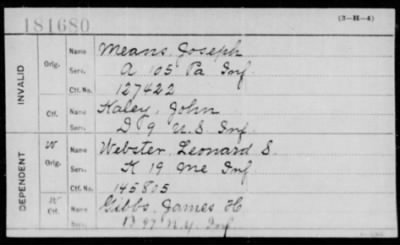 181680 (3-H-4)
INVALID
Orig. Name Means, Joseph
Serv. A 105 Pa Inf
Ctf. No. 127422
Ctf. Name Kaley, John
Serv. D 9 U.S Inf
DEPENDENT
W Orig. Name Webster, Leonard S.
Serv. K 19 Me Inf
Ctf. No. 145805
W Ctf. Name Gibbs, James H
97 N.Y. Inf